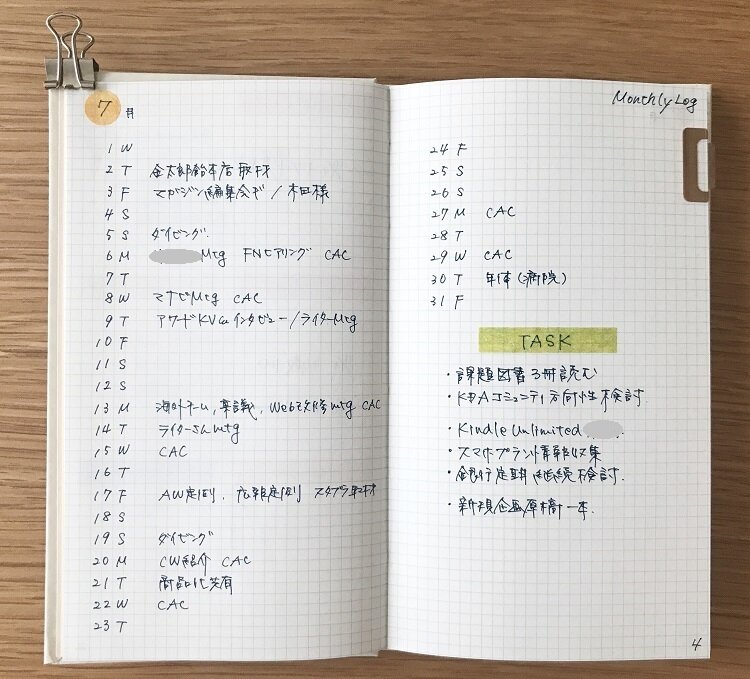 7月
1 W
2 T 金太郎飴本店取材
3 F マガジン編集会ギ / 本田様
4 S
5 S ダイビング
6 M Mtg FNヒアリング CAC
7 T
8 W マナビMtg CAC
9 T アワードKVaインタビュー/ライターMtg
10 F
11 S
12 S
13 M 海外チーム, 事議, Web mtg CAC
14 T ライターさんmtg
15 W CAC
16 T
17 F AW定例, 広報定例
18 S
19 S ダイビング
20 M CW紹介 CAC
21 T 商品化共有
22 W CAC
23 T
Monthly Log
24 F
25 S
26 S
27 M CAC
28 T
29 W CAC
30 T 年休(病院)
31 F
TASK
・課題図書3冊読む
・コミュニティ方向性検討
・Kindle Unlimited
・スマホプラント情報収集
・銀行定期継続検討.
・新規企画原稿一本.
4